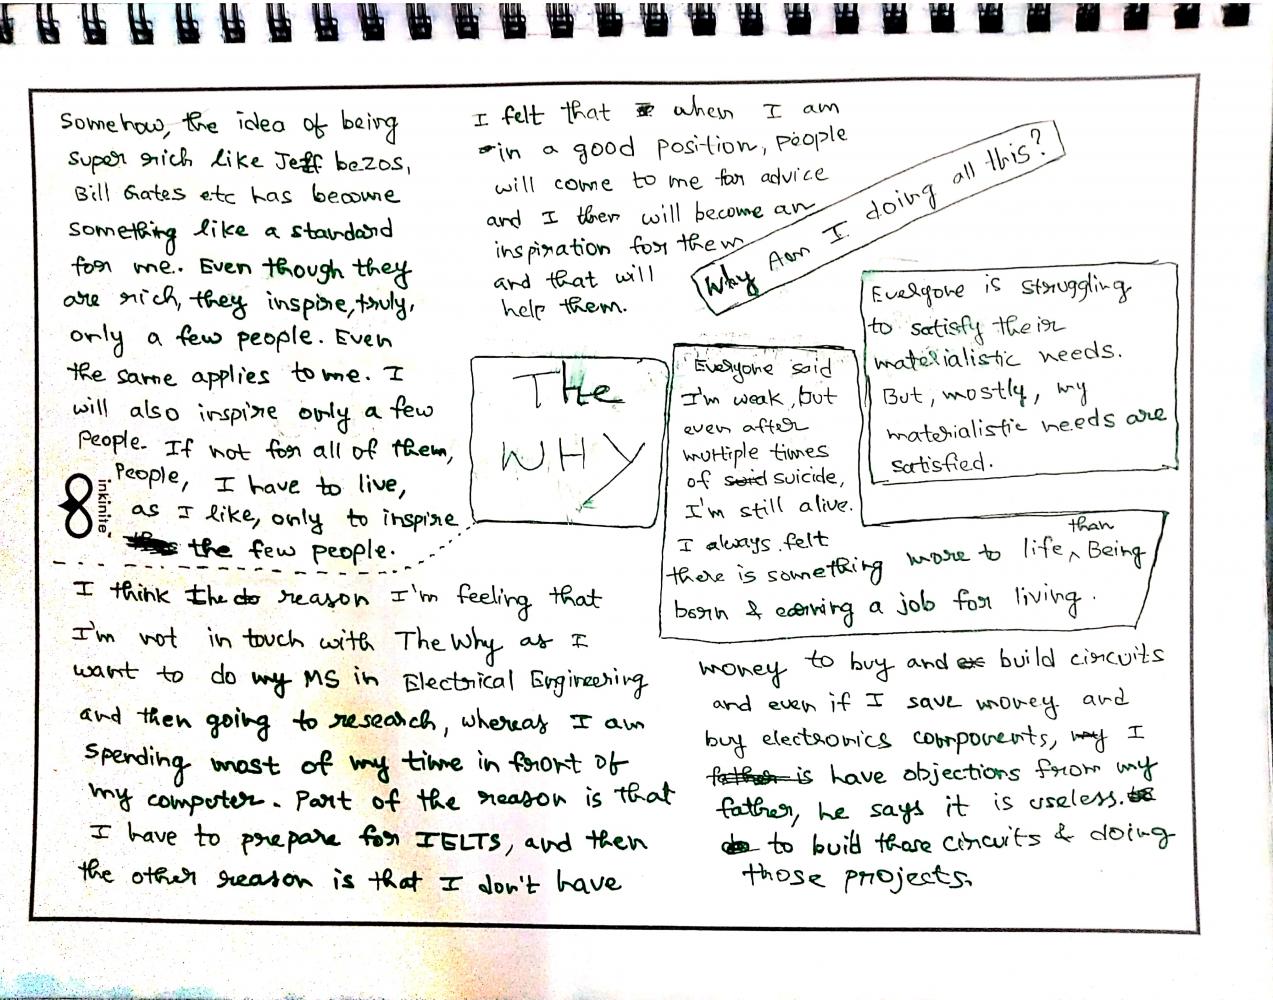 Somehow, the idea of being
super rich like Jeff bezos,
Bill Gates etc has become
something like a standard
for me. Even though they
are rich, they inspire, truly,
only a few people. Even
the same applies to me. I
will also inspire only a few
people. If not for all of them,
people, I have to live,
as I like, only to inspire
the few people.
inkinite,
I felt that when I am
in a good position, people
will come to me for advice
and I then will become an
inspiration for them
and that will
help them.
Why Am I doing all this?
THe
WHY
Everyone said
I'm weak, but
even after
multiple times
of suicide,
I'm still alive.
I always felt
there is something more to life than Being
born & earning a job for living.
Everyone is struggling
to satisfy their
materialistic needs.
But, mostly, my
materialistic needs are
satisfied.
I think the reason I'm feeling that
I'm not in touch with The Why as I
want to do my MS in Electrical Engineering
and then going to research, whereas I am
spending most of my time in front of
my computer. Part of the reason is that
I have to prepare for IELTS, and then
the other reason is that I don't have
money to buy and build circuits
and even if I save money and
buy electronics components, I
have objections from my
father, he says it is useless.
to build those circuits & doing
those projects.